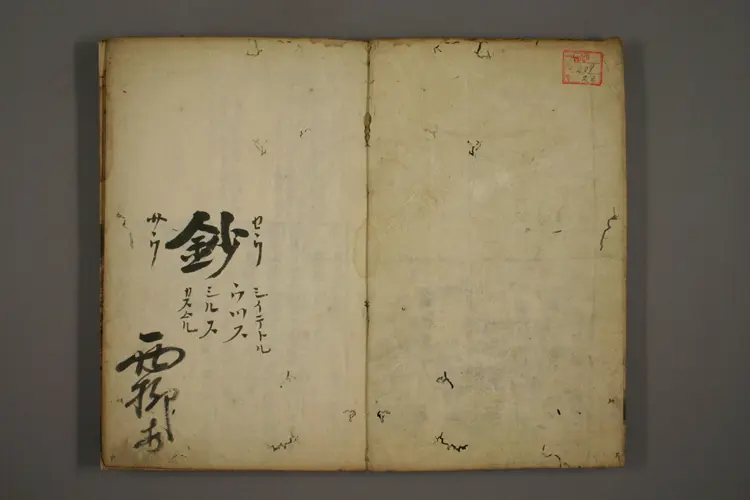 セウ
鈔
サウ
シイテトル
ウツス
シルス
カスムル
西柳